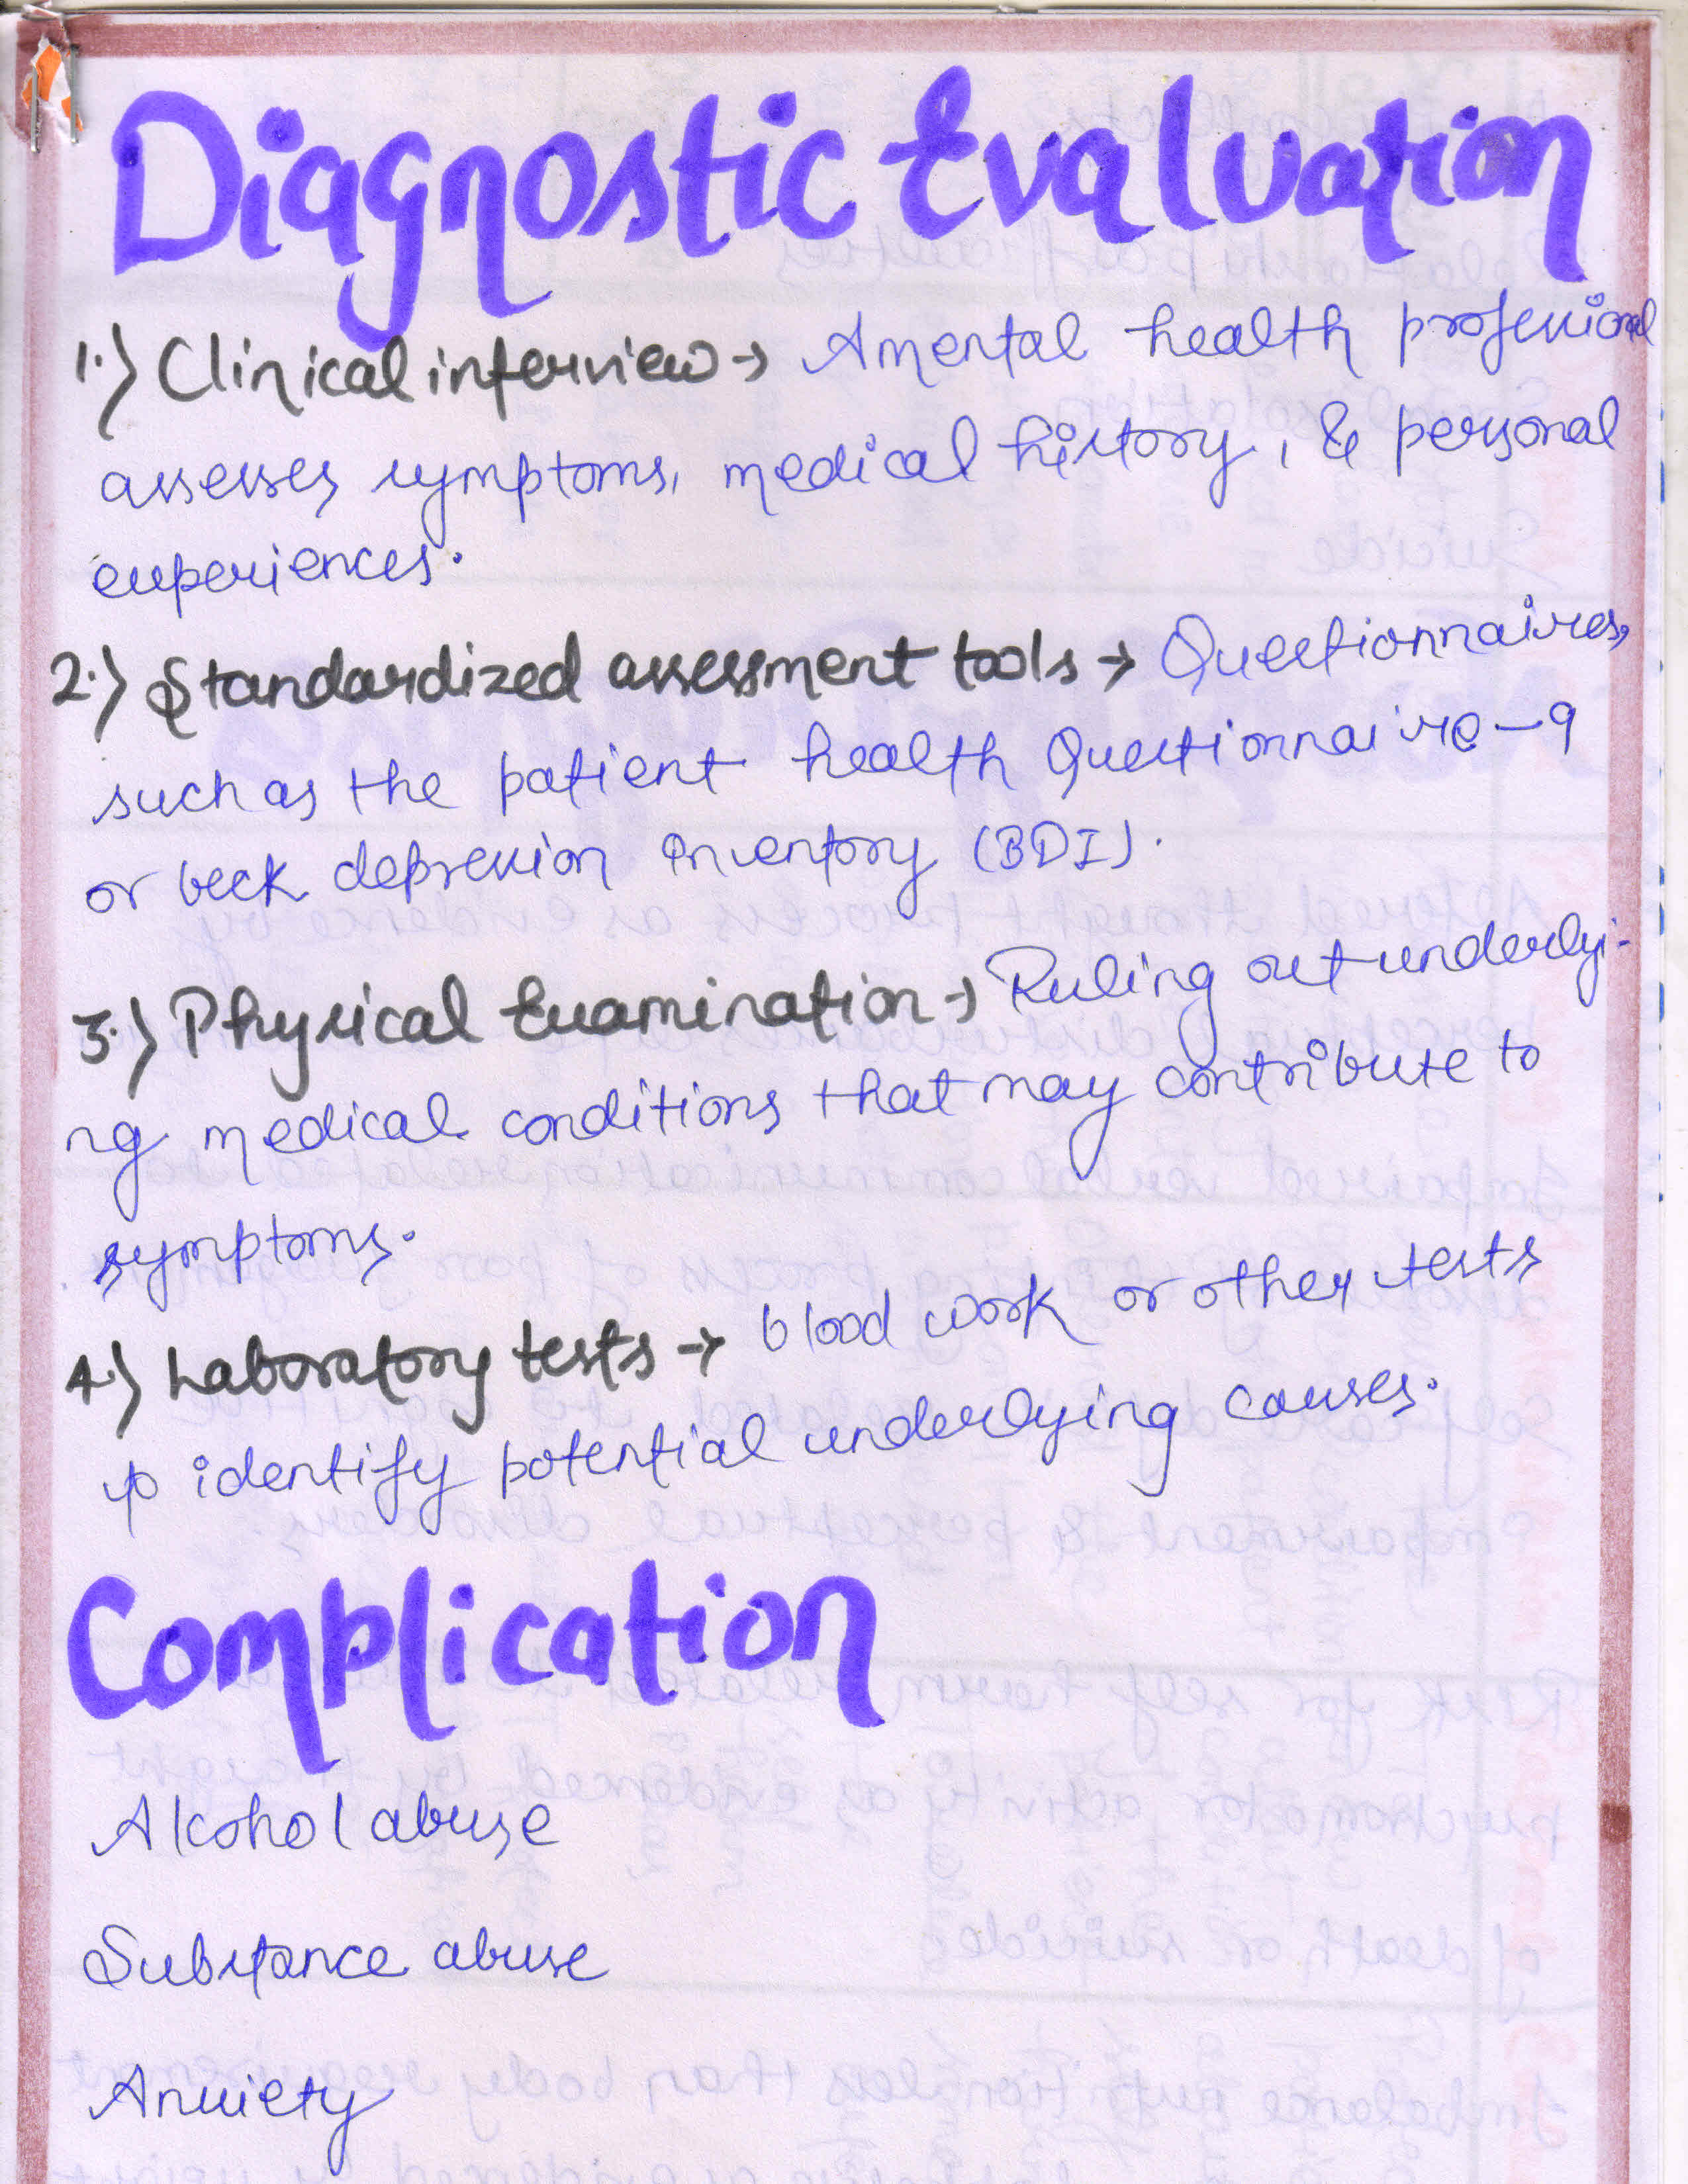 Diagnostic Evaluation
1.) Clinical interview → A mental health professional
assesses symptoms, medical history, & personal
experiences.
2.) Standardized assessment tools → Questionnaires,
such as the patient health Questionnaire-9
or beck depression Inventory (BDI).
3.) Physical Examination → Ruling out underlyi-
ng medical conditions that may contribute to
symptoms.
4.) Laboratory tests → blood work or other tests
to identify potential underlying causes.
Complication
Alcohol abuse
Substance abuse
Anxiety